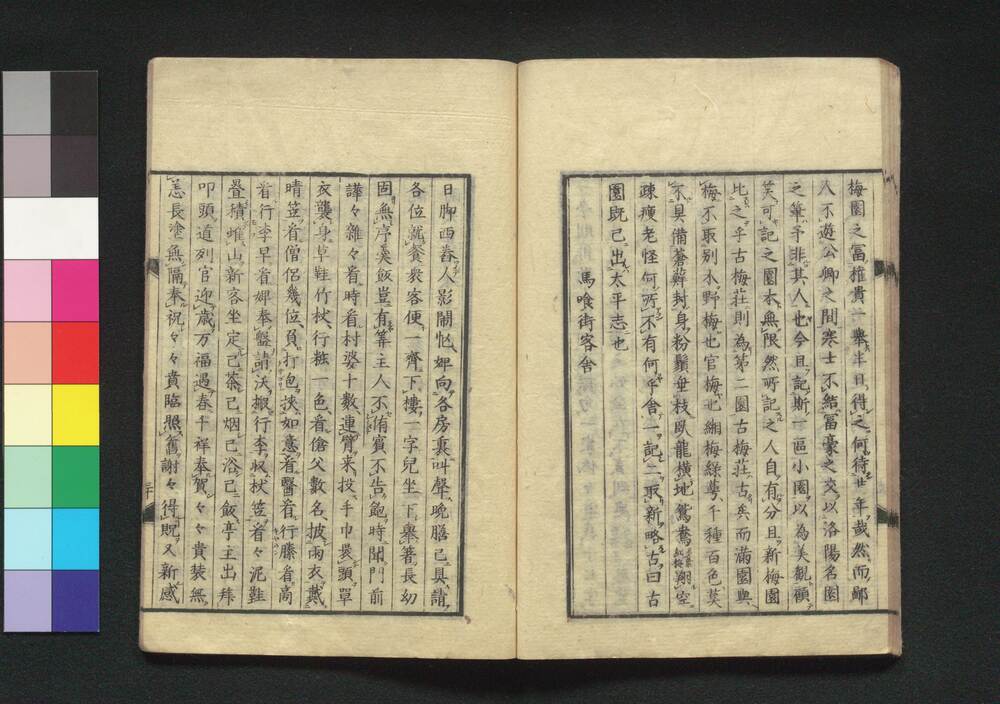 梅園之富推貴一擧半日得之何待廿年哉然而鄙
人不遊公卿之間寒士不結富豪之交以洛陽名園
之筆予非其人也今且記斯一區小園以為美觀願
笑可記之園本無限然所記之人自有分且新梅園
比之乎古梅莊則為第二園古梅莊古矣而滿園與
梅不取別水野梅也官梅也緗梅綠萼千種百色莫
不具備蒼蘚封身粉鬚垂枝臥龍橫地鴛鴦翔空
疎瘦老怪何所不有何乎舍一記二取新略古曰古
園既已出太平志也
馬喰街客舍
日脚西舂人影鬧忙婢向各房裏叫聲晚膳已具請
各位就餐衆客便一齊下樓一字兒坐下擧箸長幼
固無序羹飯豈有算主人不侑賓不告飽時聞門前
譁々雜々看時看村婆十數連臂来投手巾褁頭單
衣襲身草鞋竹杖行粧一色看傖父數名披雨衣戴
晴笠看僧侶幾位負打包挾如意看醫看行縢看高
看行李早看婢奉盤請沃搬行李収杖笠看々泥鞋
疊積雖山新客坐定已茶已烟已浴已飯亭主出拜
叩頭道列官迎歲万福遇春千祥奉賀々々貴裝無
恙長塗無隔奉祝々々貴臨照舊謝々得既又新感